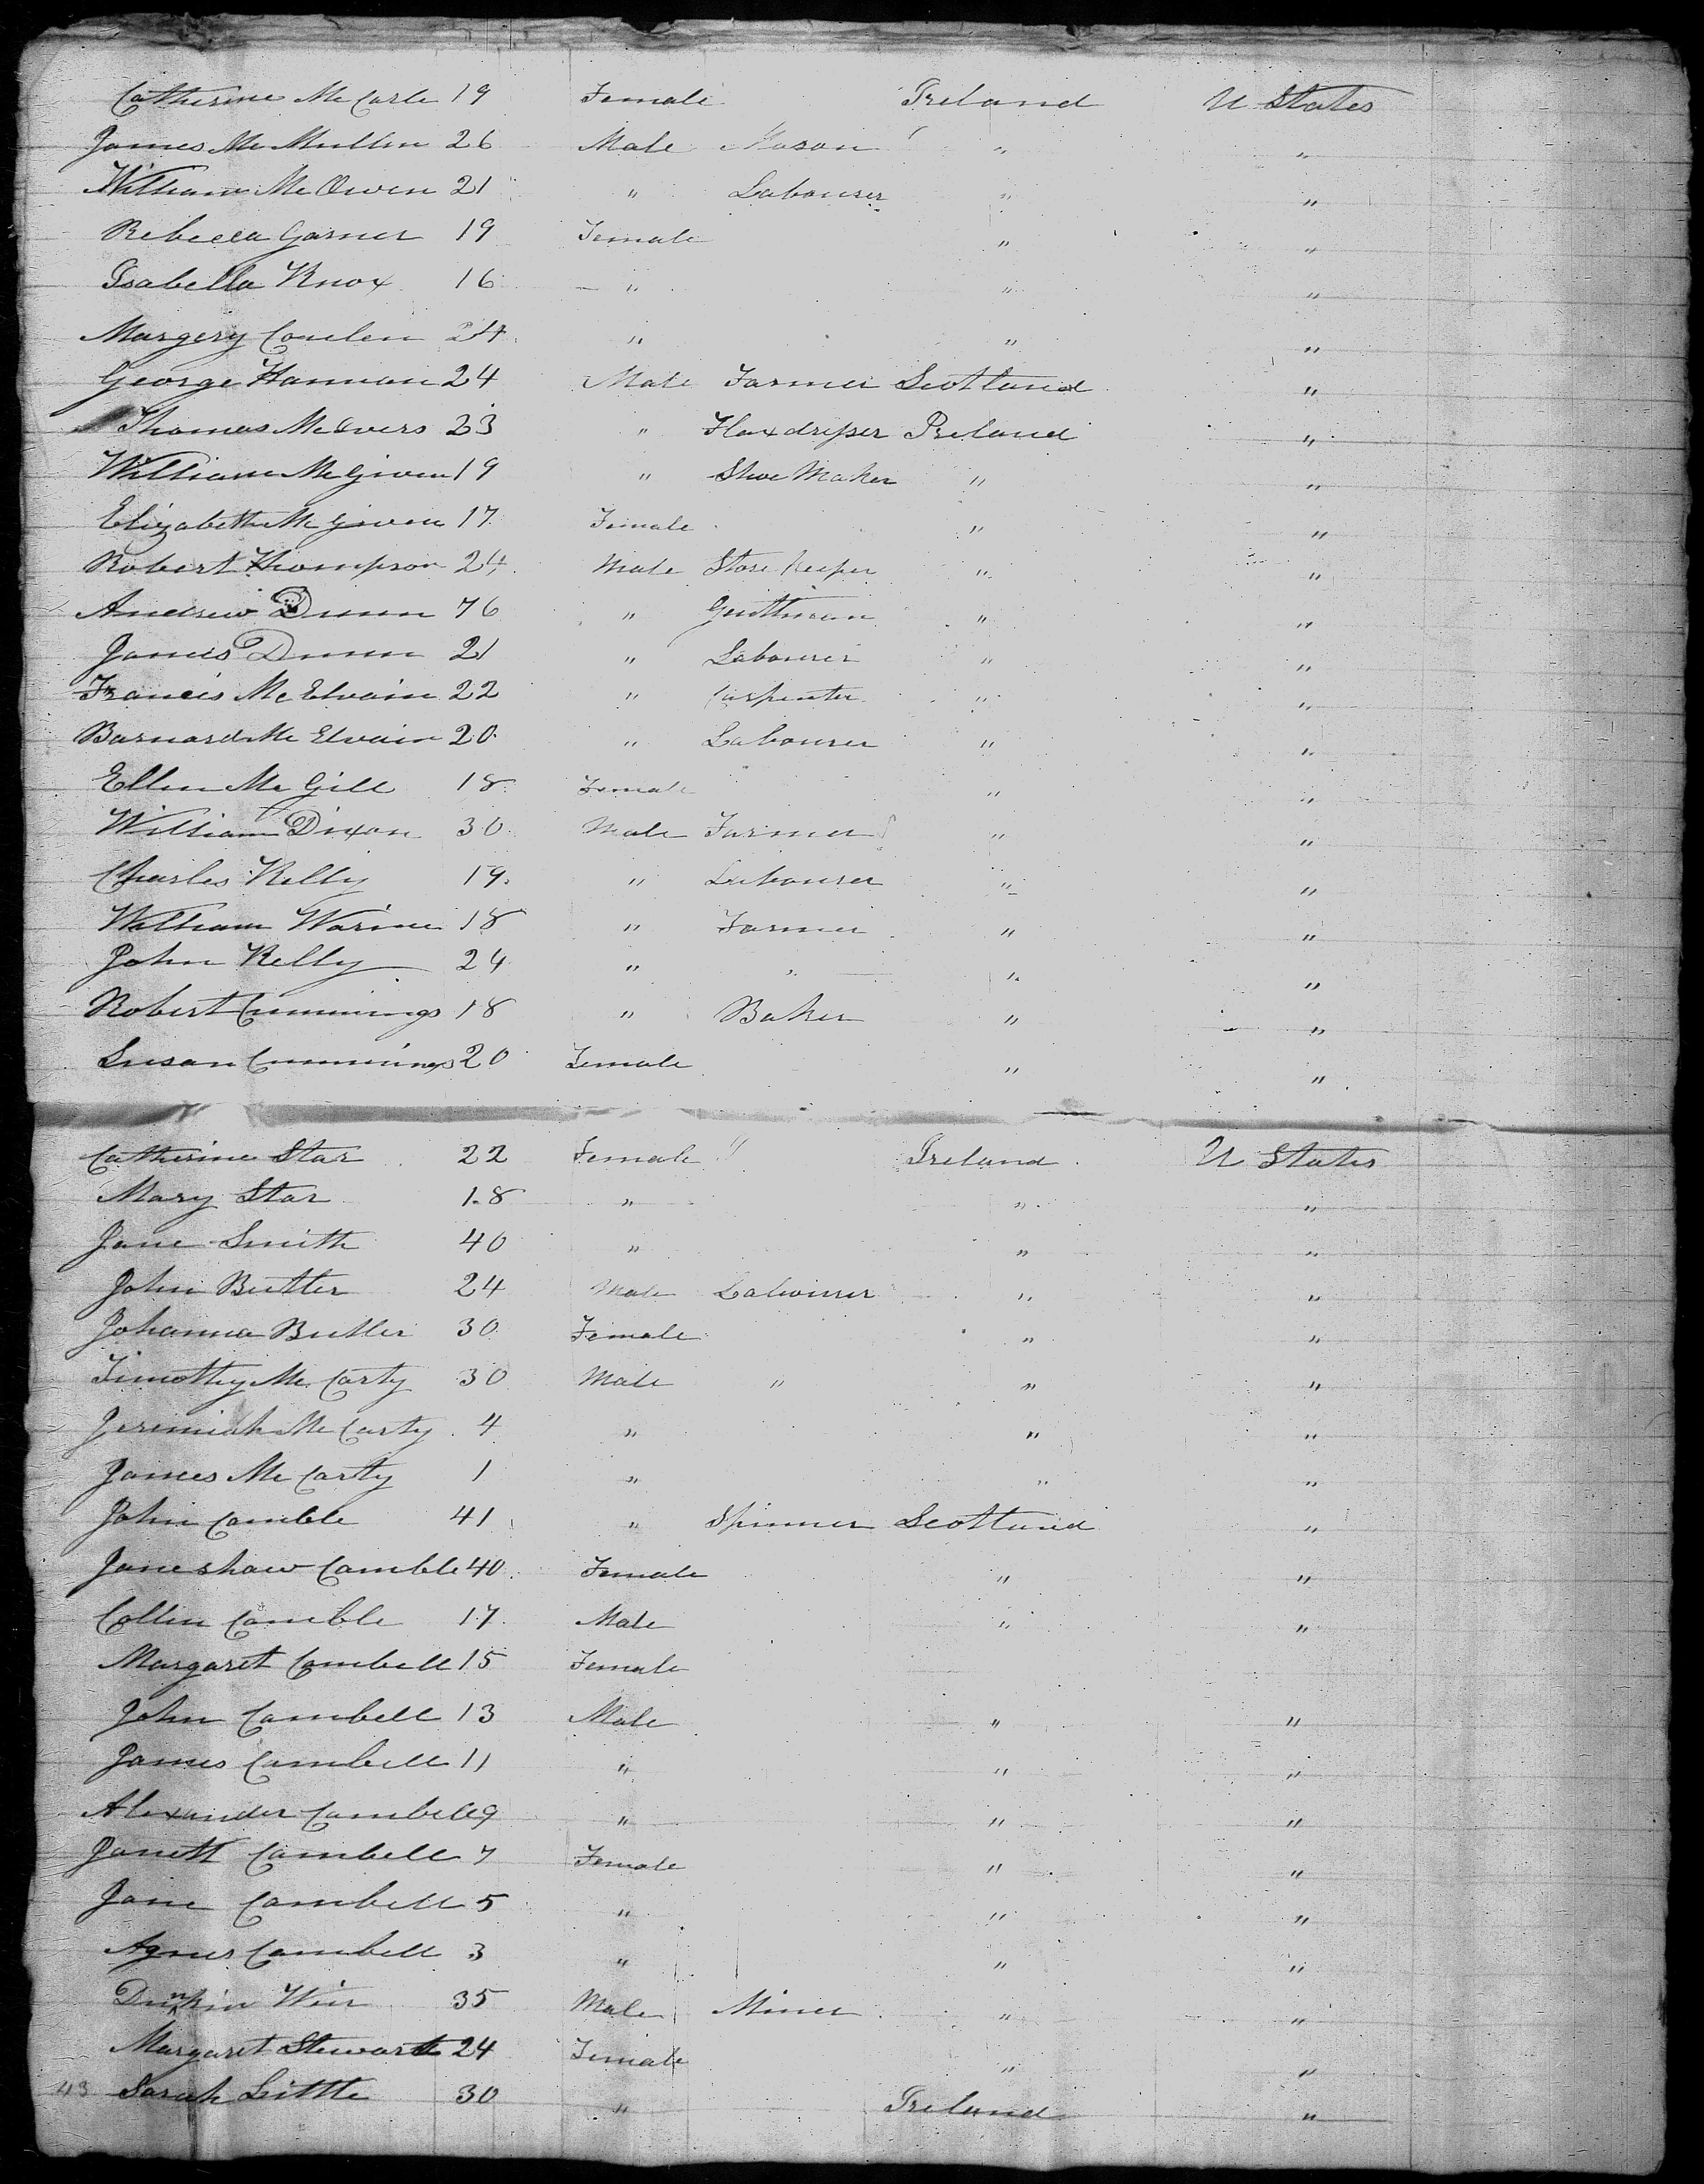 Catherine Mc Carle 19 Female Ireland U States
James Mc Mullen 26 Male Mason " "
William Mc Owen 21 " Labourer " "
Rebecca Garner 19 Female " "
Isabella Knox 16 " " "
Margery 24 " " "
George Hannan 24 Male Farmer Scotland "
Thomas McEvers 23 " Flaxdresser Ireland "
William Mc Given 19 " Shoe Maker " "
Elizabeth Mc Given 17 Female " "
Robert Thompson 24 Male Store Keeper " "
Andrew Dunn 76 " Gentleman " "
James Dunn 21 " Labourer " "
Francis Mc Elvain 22 " Carpenter " "
Barnard Mc Elvain 20 " Labourer " "
Ellen Mc Gill 18 Female " "
William Dixon 30 Male Farmer " "
Charles Kelly 19 " Labourer " "
William Warine 18 " Farmer " "
John Kelly 24 " " " "
Robert Cummings 18 " Baker " "
Susan Cummings 20 Female " "
Catherine Star 22 Female " Ireland U States
Mary Star 18 " " "
Jane Smith 40 " " "
John Butler 24 Male Labourer " "
Johanna Butler 30 Female " "
Timothy Mc Carty 30 Male " " "
Jeremiah Mc Carty 4 " " "
James Mc Carty 1 " " "
John Camble 41 " Spinner Scotland "
Jane shaw Camble 40 Female " "
Collin Camble 17 Male " "
Margaret Cambell 15 Female
John Cambell 13 Male " "
James Cambell 11 " " "
Alexander Cambell 9 " " "
Janett Cambell 7 Female " "
Jane Cambell 5 " " "
Agnes Cambell 3 " " "
Dunkin Wier 35 Male Miner " "
Margaret Stewart 24 Female " "
43 Sarah Little 30 " Ireland "